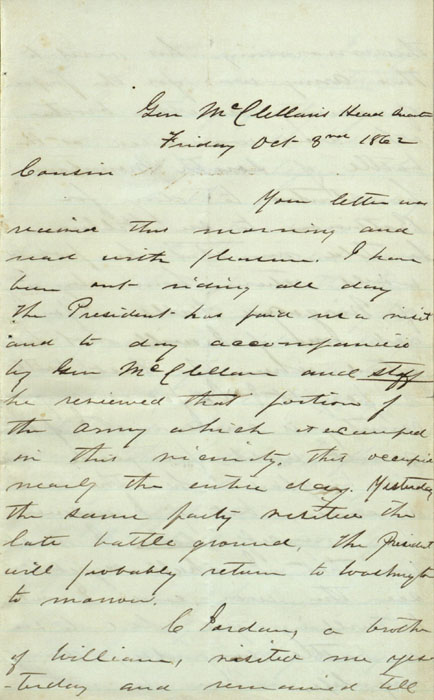 Gen McClellan's Head Quarters
Friday Oct 3rd 1862
Cousin
Your letter was
received this morning and
read with pleasure. I have
been out riding all day
The President has paid us a visit
and to day accompanied
by Gen McClellan and staff
he reviewed that portion of
the army which is encamped
in this vicinity. this occupied
nearly the entire day. Yesterday
the same party visited the
late battle ground, the President
will probably return to Washington
to morrow.
C Jordan, a brother
of William, visited me yes-
-terday and remained till